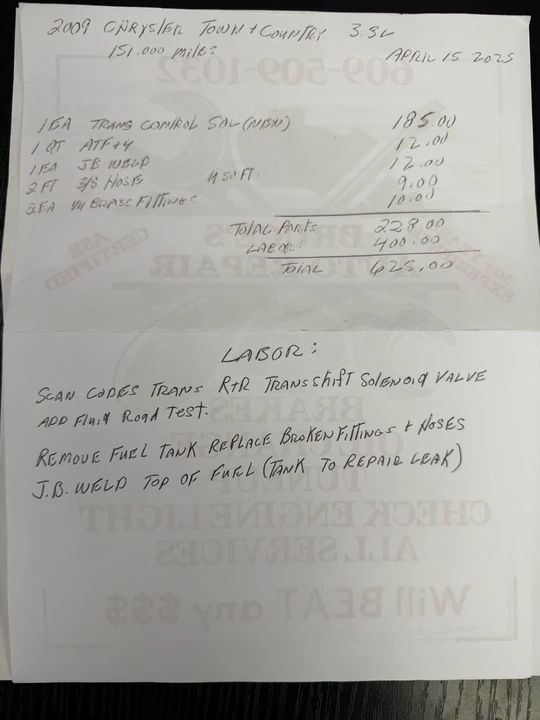 2009 CHRYSLER TOWN + COUNTRY 3.3L
151.000 MILES APRIL 15 2025
1 EA TRANS CONTROL SOL (NEW) 185.00
1 QT ATF+4 12.00
1 EA JB WELD 12.00
2 FT 3/8 HOSE 4.50 FT. 9.00
2 EA 1/4 BRASS FITTINGS 10.00
TOTAL PARTS 228.00
LABOR: 400.00
TOTAL 628.00
LABOR:
SCAN CODES TRANS R+R TRANS SHIFT SOLENOID VALVE
ADD FLUID ROAD TEST.
REMOVE FUEL TANK REPLACE BROKEN FITTINGS + HOSES
J.B. WELD TOP OF FUEL (TANK TO REPAIR LEAK)
609-509-1032
ASE
CERTIFIED
BRAKES
TUNEUP
CHECK ENGINE LIGHT
ALL SERVICES
Will BEAT any $$$